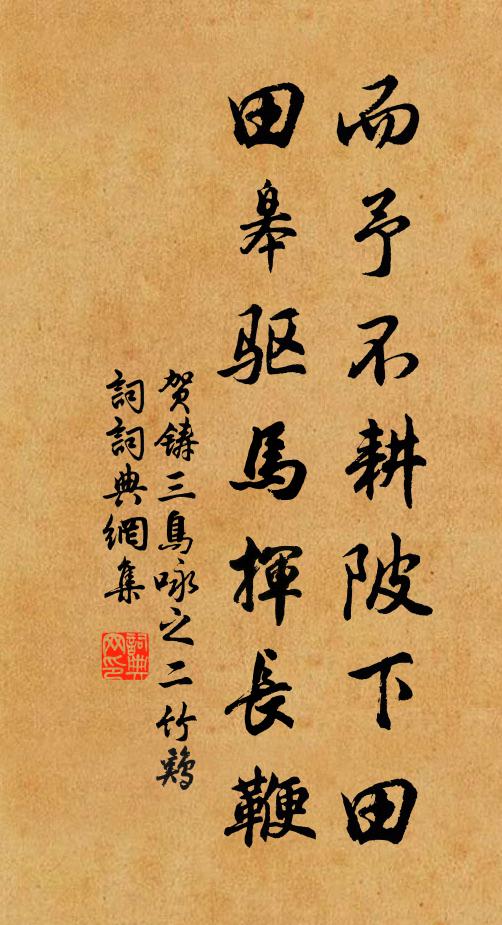 而予不耕陂下田
田皋驱馬揮長鞭
贺鑄三鳥咏之二竹鷄
詞詞典網集
詞典網印